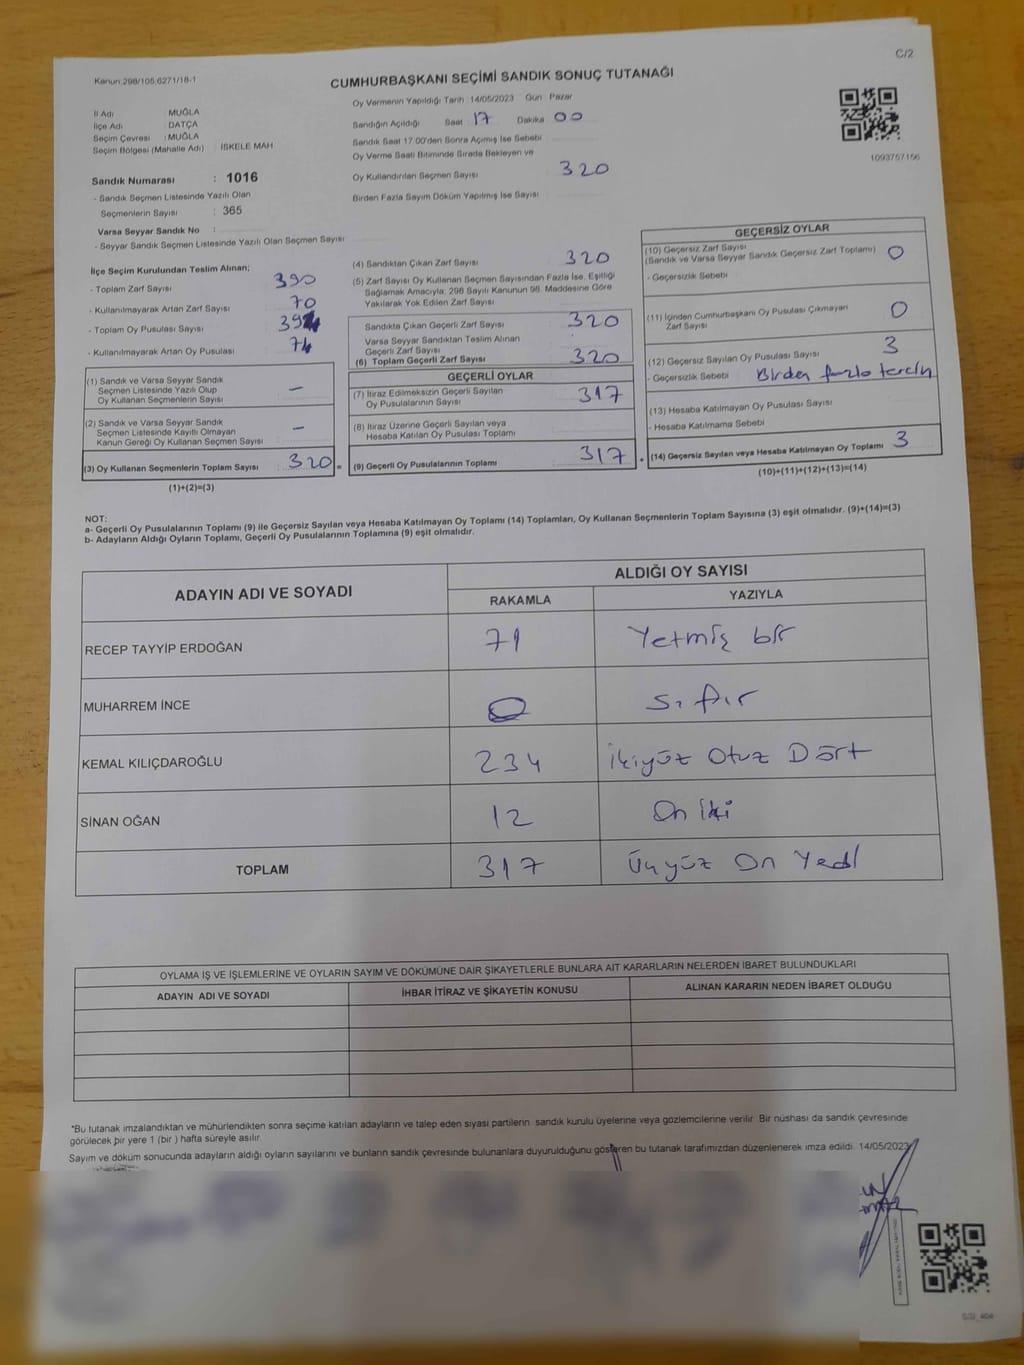 C/2
Kanun:298/105,6271/18-1
CUMHURBAŞKANI SEÇİMİ SANDIK SONUÇ TUTANAĞI
İl Adı : MUĞLA
İlçe Adı : DATÇA
Seçim Çevresi : MUĞLA
Seçim Bölgesi (Mahalle Adı) : İSKELE MAH
Sandık Numarası : 1016
- Sandık Seçmen Listesinde Yazılı Olan
Seçmenlerin Sayısı : 365
Varsa Seyyar Sandık No :
- Seyyar Sandık Seçmen Listesinde Yazılı Olan Seçmen Sayısı
Oy Vermenin Yapıldığı Tarih :14/05/2023 Gün : Pazar
Sandığın Açıldığı Saat 17 Dakika 00
Sandık Saat 17:00'den Sonra Açılmış İse Sebebi
Oy Verme Saati Bitiminde Sırada Bekleyen ve
Oy Kullandırılan Seçmen Sayısı 320
Birden Fazla Sayım Döküm Yapılmış İse Sayısı
1093757156
İlçe Seçim Kurulundan Teslim Alınan;
- Toplam Zarf Sayısı 390
- Kullanılmayarak Artan Zarf Sayısı 70
- Toplam Oy Pusulası Sayısı 394
- Kullanılmayarak Artan Oy Pusulası 74
(1) Sandık ve Varsa Seyyar Sandık
Seçmen Listesinde Yazılı Olup
Oy Kullanan Seçmenlerin Sayısı –
(2) Sandık ve Varsa Seyyar Sandık
Seçmen Listesinde Kayıtlı Olmayan
Kanun Gereği Oy Kullanan Seçmen Sayısı –
(3) Oy Kullanan Seçmenlerin Toplam Sayısı 320 =
(1)+(2)=(3)
(4) Sandıktan Çıkan Zarf Sayısı 320
(5) Zarf Sayısı Oy Kullanan Seçmen Sayısından Fazla İse, Eşitliği
Sağlamak Amacıyla; 298 Sayılı Kanunun 98. Maddesine Göre
Yakılarak Yok Edilen Zarf Sayısı
Sandıkta Çıkan Geçerli Zarf Sayısı 320
Varsa Seyyar Sandıktan Teslim Alınan
Geçerli Zarf Sayısı
(6) Toplam Geçerli Zarf Sayısı 320
GEÇERLİ OYLAR
(7) İtiraz Edilmeksizin Geçerli Sayılan
Oy Pusulalarının Sayısı 317
(8) İtiraz Üzerine Geçerli Sayılan veya
Hesaba Katılan Oy Pusulası Toplamı
(9) Geçerli Oy Pusulalarının Toplamı 317 +
GEÇERSİZ OYLAR
(10) Geçersiz Zarf Sayısı
(Sandık ve Varsa Seyyar Sandık Geçersiz Zarf Toplamı) 0
- Geçersizlik Sebebi
(11) İçinden Cumhurbaşkanı Oy Pusulası Çıkmayan
Zarf Sayısı 0
(12) Geçersiz Sayılan Oy Pusulası Sayısı 3
- Geçersizlik Sebebi Birden fazla tercih
(13) Hesaba Katılmayan Oy Pusulası Sayısı
- Hesaba Katılmama Sebebi
(14) Geçersiz Sayılan veya Hesaba Katılmayan Oy Toplamı 3
(10)+(11)+(12)+(13)=(14)
NOT:
a- Geçerli Oy Pusulalarının Toplamı (9) ile Geçersiz Sayılan veya Hesaba Katılmayan Oy Toplamı (14) Toplamları, Oy Kullanan Seçmenlerin Toplam Sayısına (3) eşit olmalıdır. (9)+(14)=(3)
b- Adayların Aldığı Oyların Toplamı, Geçerli Oy Pusulalarının Toplamına (9) eşit olmalıdır.
ADAYIN ADI VE SOYADI ALDIĞI OY SAYISI
RAKAMLA YAZIYLA
RECEP TAYYİP ERDOĞAN 71 Yetmiş bir
MUHARREM İNCE 0 sıfır
KEMAL KILIÇDAROĞLU 234 İkiyüz Otuz Dört
SİNAN OĞAN 12 On iki
TOPLAM 317 Üçyüz On Yedi
OYLAMA İŞ VE İŞLEMLERİNE VE OYLARIN SAYIM VE DÖKÜMÜNE DAİR ŞİKAYETLERLE BUNLARA AİT KARARLARIN NELERDEN İBARET BULUNDUKLARI
ADAYIN ADI VE SOYADI İHBAR İTİRAZ VE ŞİKAYETİN KONUSU ALINAN KARARIN NEDEN İBARET OLDUĞU
*Bu tutanak imzalandıktan ve mühürlendikten sonra seçime katılan adayların ve talep eden siyasi partilerin sandık kurulu üyelerine veya gözlemcilerine verilir. Bir nüshası da sandık çevresinde
görülecek bir yere 1 (bir ) hafta süreyle asılır.
Sayım ve döküm sonucunda adayların aldığı oyların sayılarını ve bunların sandık çevresinde bulunanlara duyurulduğunu gösteren bu tutanak tarafımızdan düzenlenerek imza edildi. 14/05/2023